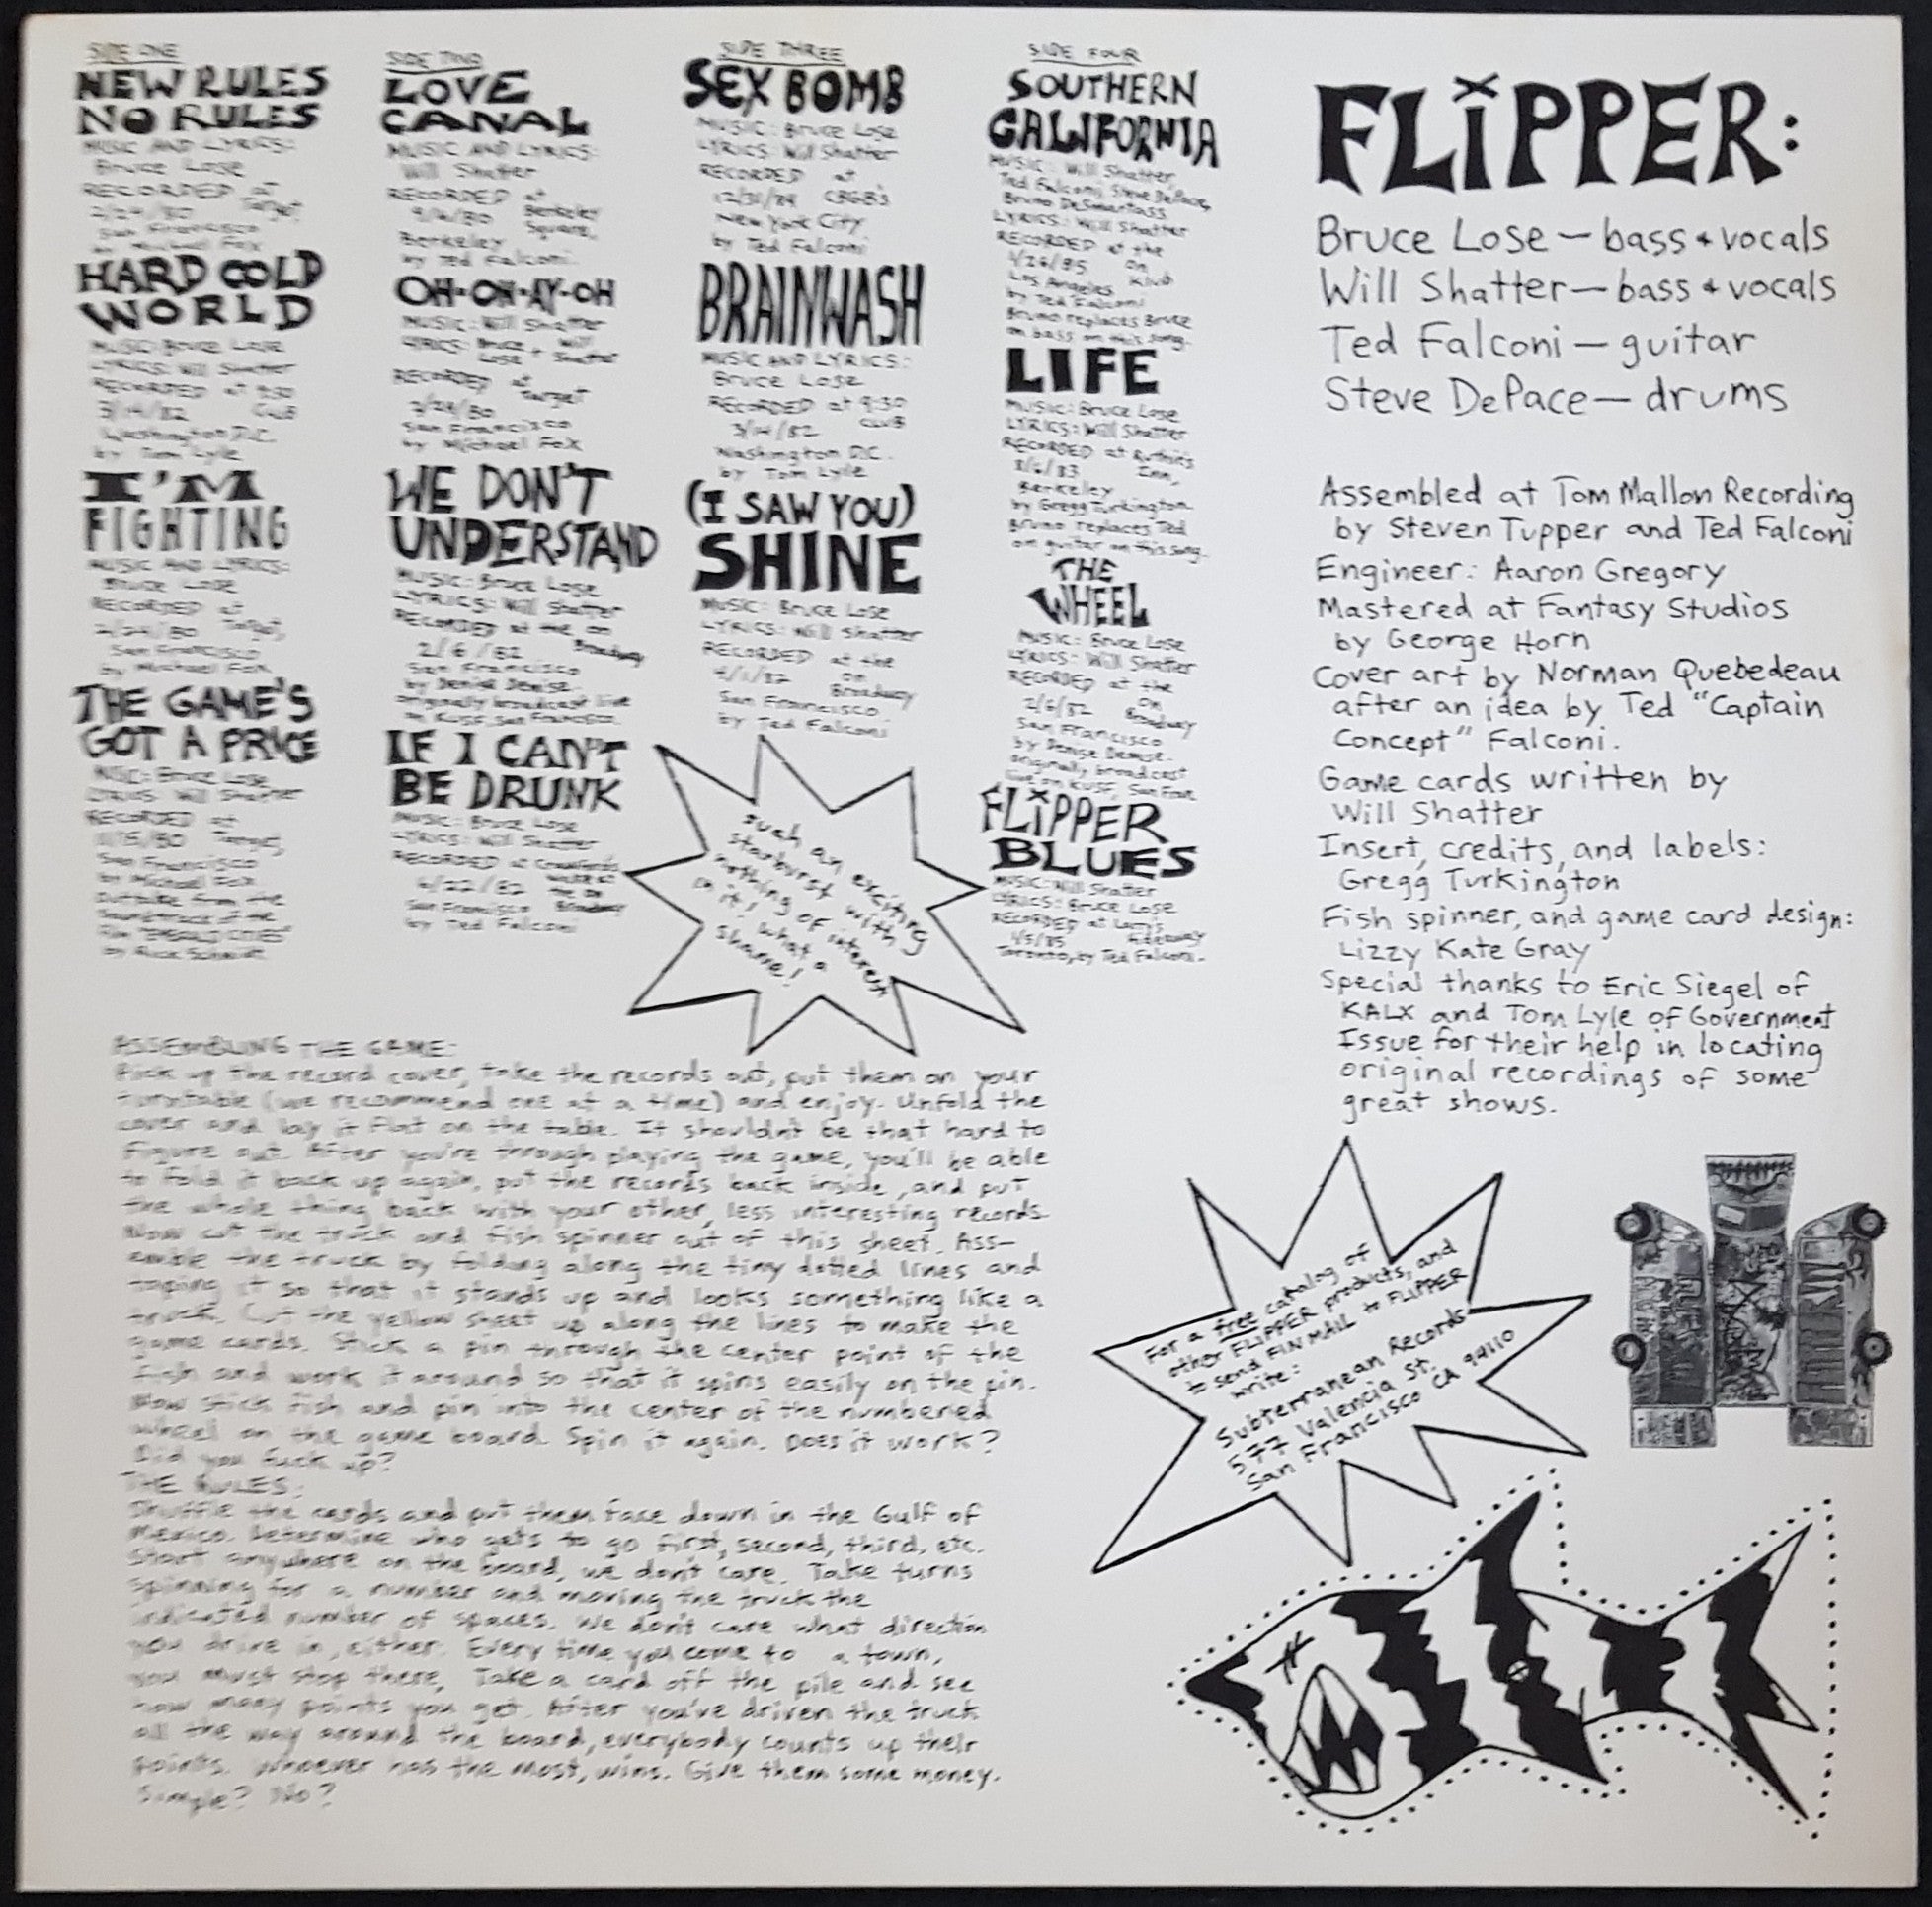 SIDE ONE
NEW RULES
NO RULES
MUSIC AND LYRICS:
Bruce Lose
RECORDED at
2/24/80 Target,
San Francisco
by Michael Fox
HARD COLD
WORLD
MUSIC: Bruce Lose
LYRICS: Will Shatter
RECORDED at 9:30
3/14/82 CLUB
Washington D.C.
by Tom Lyle
I'M
FIGHTING
MUSIC AND LYRICS:
Bruce Lose
RECORDED at
2/24/80 Target,
San Francisco
by Michael Fox
THE GAME'S
GOT A PRICE
MUSIC: Bruce Lose
LYRICS: Will Shatter
RECORDED at
11/15/80 Target,
San Francisco
by Michael Fox
Outtake from the
soundtrack of the
film "EMERALD CITIES"
by Rick Schmidt
SIDE TWO
LOVE
CANAL
MUSIC AND LYRICS:
Will Shatter
RECORDED at
Berkeley
Square,
Berkeley
by Ted Falconi.
OH-OH-AY-OH
MUSIC: Will Shatter
LYRICS: Bruce + Will
Lose + Shatter
RECORDED at
Target
San Francisco
by Michael Fox
WE DON'T
UNDERSTAND
MUSIC: Bruce Lose
LYRICS: Will Shatter
RECORDED at the on
2/6/82 Broadway
San Francisco
by Denise Demise.
originally broadcast live
on KUSF, San Francisco.
IF I CAN'T
BE DRUNK
MUSIC: Bruce Lose
LYRICS: Will Shatter
RECORDED at
6/22/82 the on
San Francisco Broadway
by Ted Falconi
SIDE THREE
SEX BOMB
MUSIC: Bruce Lose
LYRICS: Will Shatter
RECORDED at
12/31/84 CBGB's
New York City
by Ted Falconi
BRAINWASH
MUSIC AND LYRICS:
Bruce Lose
RECORDED at 9:30
3/14/82 CLUB
Washington D.C.
by Tom Lyle
(I SAW YOU)
SHINE
MUSIC: Bruce Lose
LYRICS: Will Shatter
RECORDED at the
4/1/82 on
Broadway
San Francisco
by Ted Falconi
such an exciting
starburst with
nothing of interest
in it, what a
shame!
SIDE FOUR
SOUTHERN
CALIFORNIA
MUSIC: Will Shatter,
Ted Falconi, Steve DePace,
Bruno DeSmartass
LYRICS: Will Shatter
RECORDED at the
1/26/85 on
Los Angeles Klub
by Ted Falconi
Bruno replaces Bruce
on bass on this song.
LIFE
MUSIC: Bruce Lose
LYRICS: Will Shatter
RECORDED at Ruthie's
Inn,
Berkeley
by Gregg Turkington.
Bruno replaces Ted
on guitar on this song.
THE
WHEEL
MUSIC: Bruce Lose
LYRICS: Will Shatter
RECORDED at the
2/6/82 on
Broadway
San Francisco
by Denise Demise.
originally broadcast
live on KUSF, San Fran.
FLIPPER
BLUES
MUSIC: Will Shatter
LYRICS: Bruce Lose
RECORDED at Larry's
1/5/85 Hideaway
Toronto, by Ted Falconi.
FLIPPER:
Bruce Lose — bass + vocals
Will Shatter — bass + vocals
Ted Falconi — guitar
Steve DePace — drums
Assembled at Tom Mallon Recording
by Steven Tupper and Ted Falconi
Engineer: Aaron Gregory
Mastered at Fantasy Studios
by George Horn
Cover art by Norman Quebedeau
after an idea by Ted "Captain
Concept" Falconi.
Game cards written by
Will Shatter
Insert, credits, and labels:
Gregg Turkington
Fish spinner, and game card design:
Lizzy Kate Gray
Special thanks to Eric Siegel of
KALX and Tom Lyle of Government
Issue for their help in locating
original recordings of some
great shows.
ASSEMBLING THE GAME:
Pick up the record cover, take the records out, put them on your
turntable (we recommend one at a time) and enjoy. Unfold the
cover and lay it flat on the table. It shouldn't be that hard to
figure out. After you're through playing the game, you'll be able
to fold it back up again, put the records back inside, and put
the whole thing back with your other, less interesting records.
Now cut the truck and fish spinner out of this sheet. Ass-
emble the truck by folding along the tiny dotted lines and
taping it so that it stands up and looks something like a
truck. Cut the yellow sheet up along the lines to make the
game cards. Stick a pin through the center point of the
fish and work it around so that it spins easily on the pin.
Now stick fish and pin into the center of the numbered
wheel on the game board. Spin it again. Does it work?
Did you fuck up?
THE RULES:
Shuffle the cards and put them face down in the Gulf of
Mexico. Determine who gets to go first, second, third, etc.
Start anywhere on the board, we don't care. Take turns
spinning for a number and moving the truck the
indicated number of spaces. We don't care what direction
you drive in, either. Every time you come to a town,
you must stop there. Take a card off the pile and see
how many points you get. After you've driven the truck
all the way around the board, everybody counts up their
points. Whoever has the most, wins. Give them some money.
Simple? No?
For a free catalog of
other FLIPPER products, and
to send FIN MAIL to FLIPPER
write:
Subterranean Records
577 Valencia St.
San Francisco CA 94110